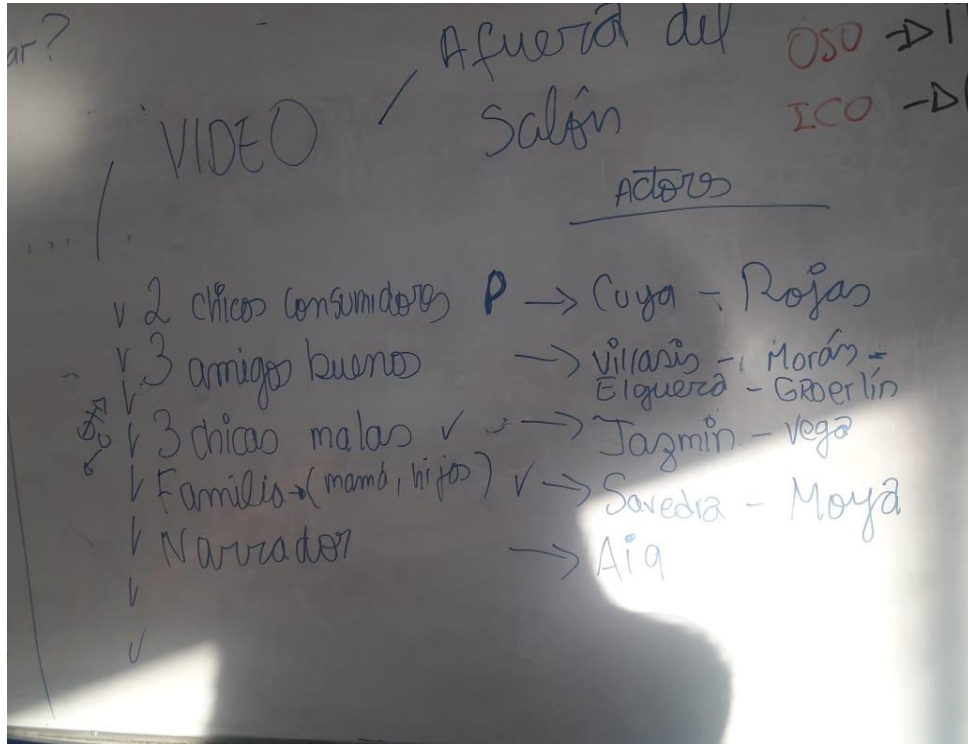 ar?
Afuera del
OSO → i
VIDEO /
Salón
ICO →
Actores
v 2 chicos consumidores P → Cuya - Rojas
v 3 amigos buenos → Villasis - Morán -
Elguera - GRoerlín
v 3 chicas malas ✓ → Jazmin - Vega
v Familia → (mamá, hijos) ✓ → Savedra - Moya
v Narrador → Aia
v
v